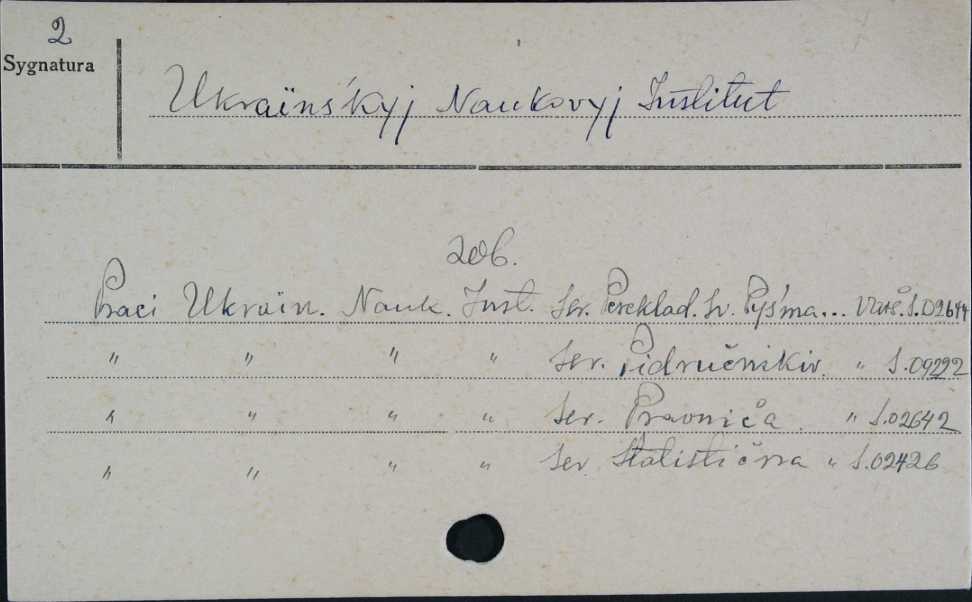 2
Sygnatura
Ukraïns'kyj Naukovyj Institut
zob.
Praci Ukraïn. Nauk. Inst. Ser. Pereklad. Sv. Pys'ma... Varš. S.02644
" " " " Ser. Pidručnikiv. " S.09292
" " " " Ser. Pravniča. " S.02642
" " " " Ser. Statistična " S.02426